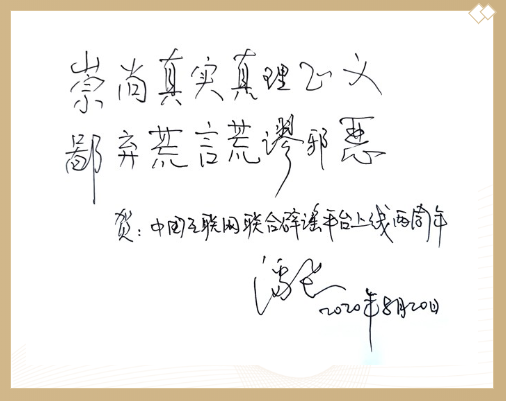 崇尚真实真理正义
鄙弃荒言荒谬邪恶
贺：中国互联网联合辟谣平台上线两周年
2020年8月20日